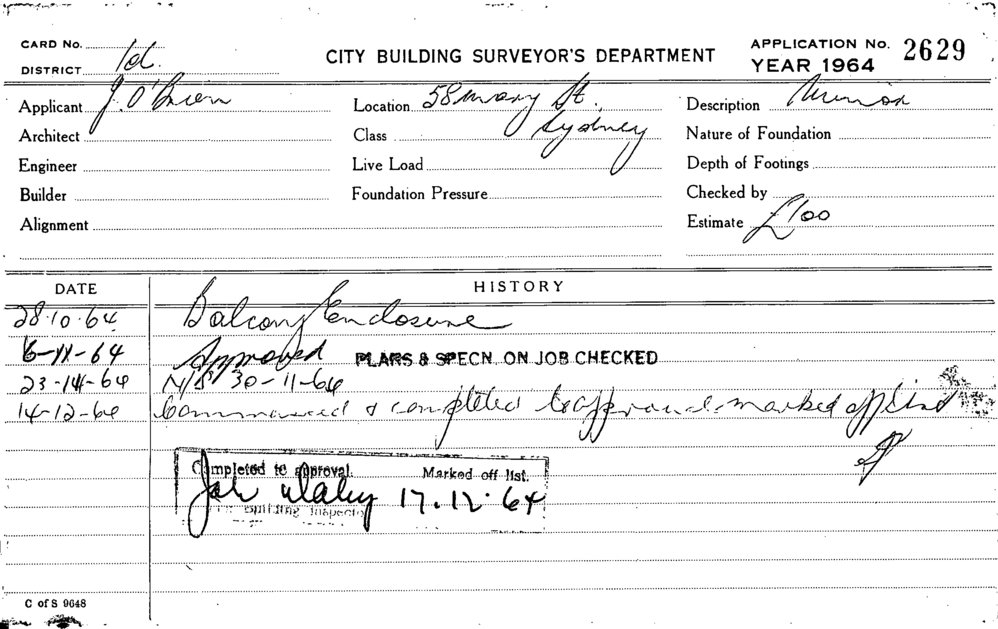 CARD No.
DISTRICT
CITY BUILDING SURVEYOR'S DEPARTMENT
APPLICATION No. 2629
YEAR 1964
Applicant J. O'Brien
Location 58 Mary St.
Sydney
Description Minor
Architect
Class
Nature of Foundation
Engineer
Live Load
Depth of Footings
Builder
Foundation Pressure
Checked by
Alignment
Estimate £100
DATE HISTORY
28.10.64 Balcony Enclosure
6-11-64 Approved PLANS & SPECN. ON JOB CHECKED
23-11-64 N/S 30-11-64
14-12-64 Commenced & completed to approval marked off list
Completed to approval. Marked off list.
Daley 17.12.64
Building Inspector
C of S 9648